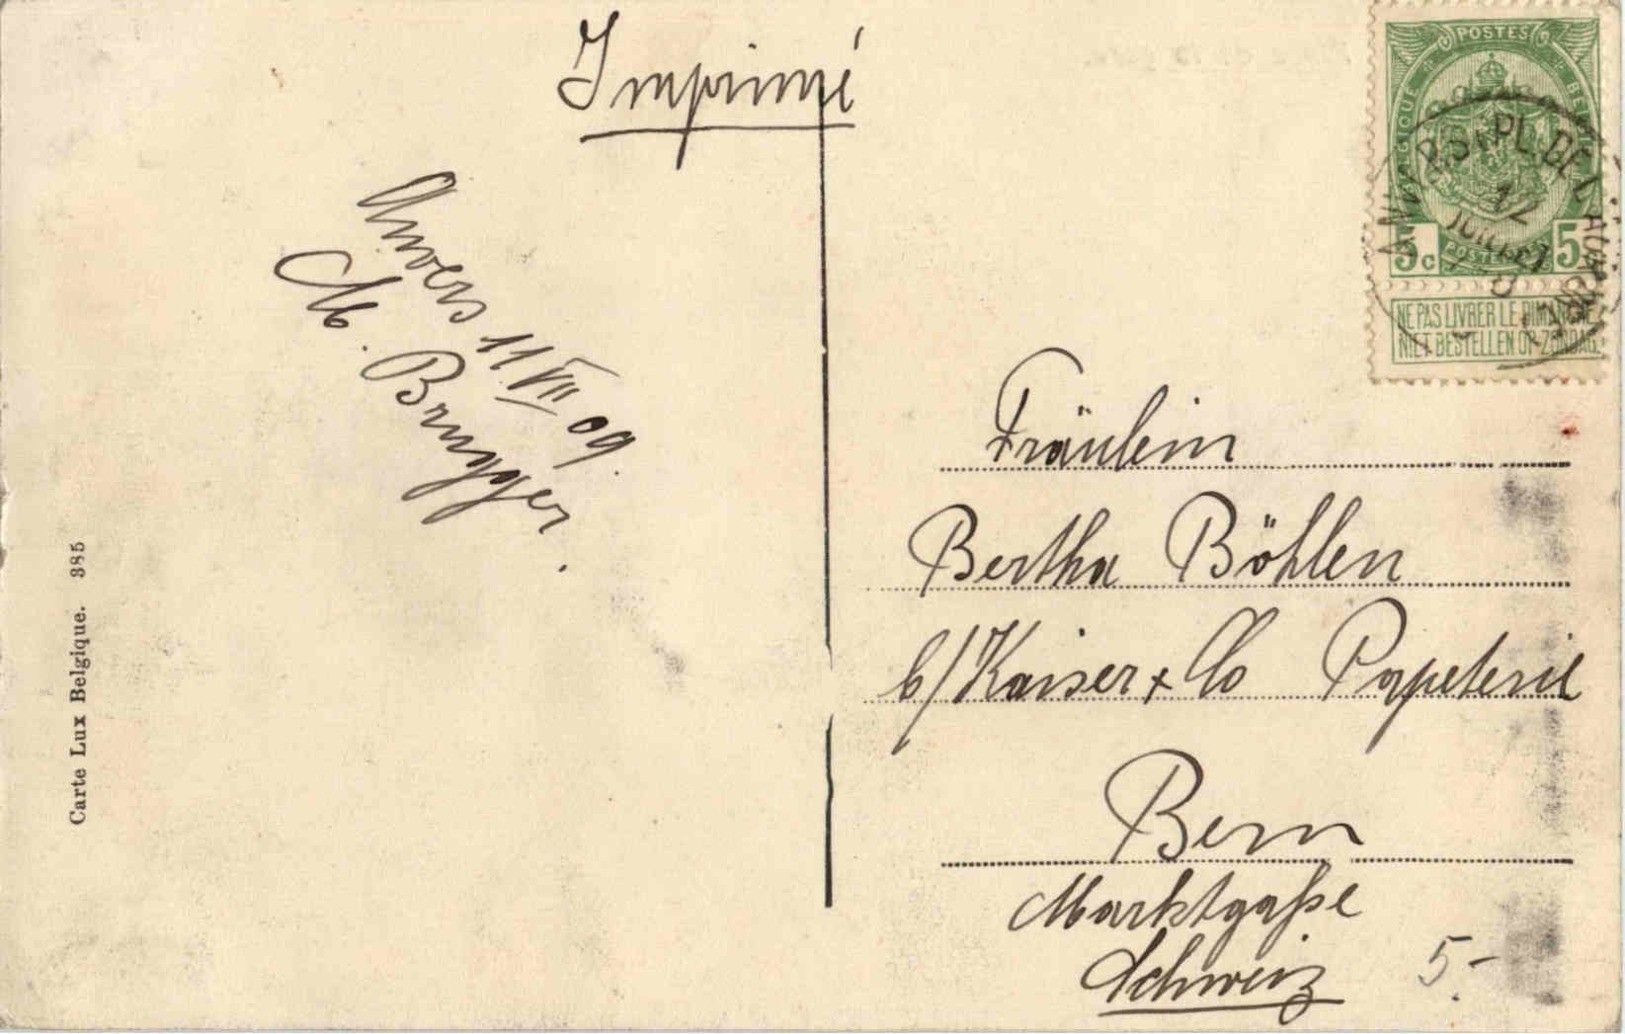 Imprimé
Anvers 11 VII 09.
M. Brugger.
Carte Lux Belgique. 385
POSTES
BELGIQUE
5c 5
NE PAS LIVRER LE DIMANCHE
NIET BESTELLEN OP ZONDAG
12
JUILLET
Fräulein
Bertha Böhlen
b/Kaiser + Co Papeterie
Bern
Marktgaße
Schweiz
5.-